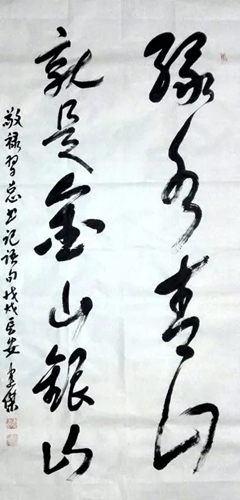 绿水青山
就是金山银山
敬录习总书记语句戊戌长安建杰